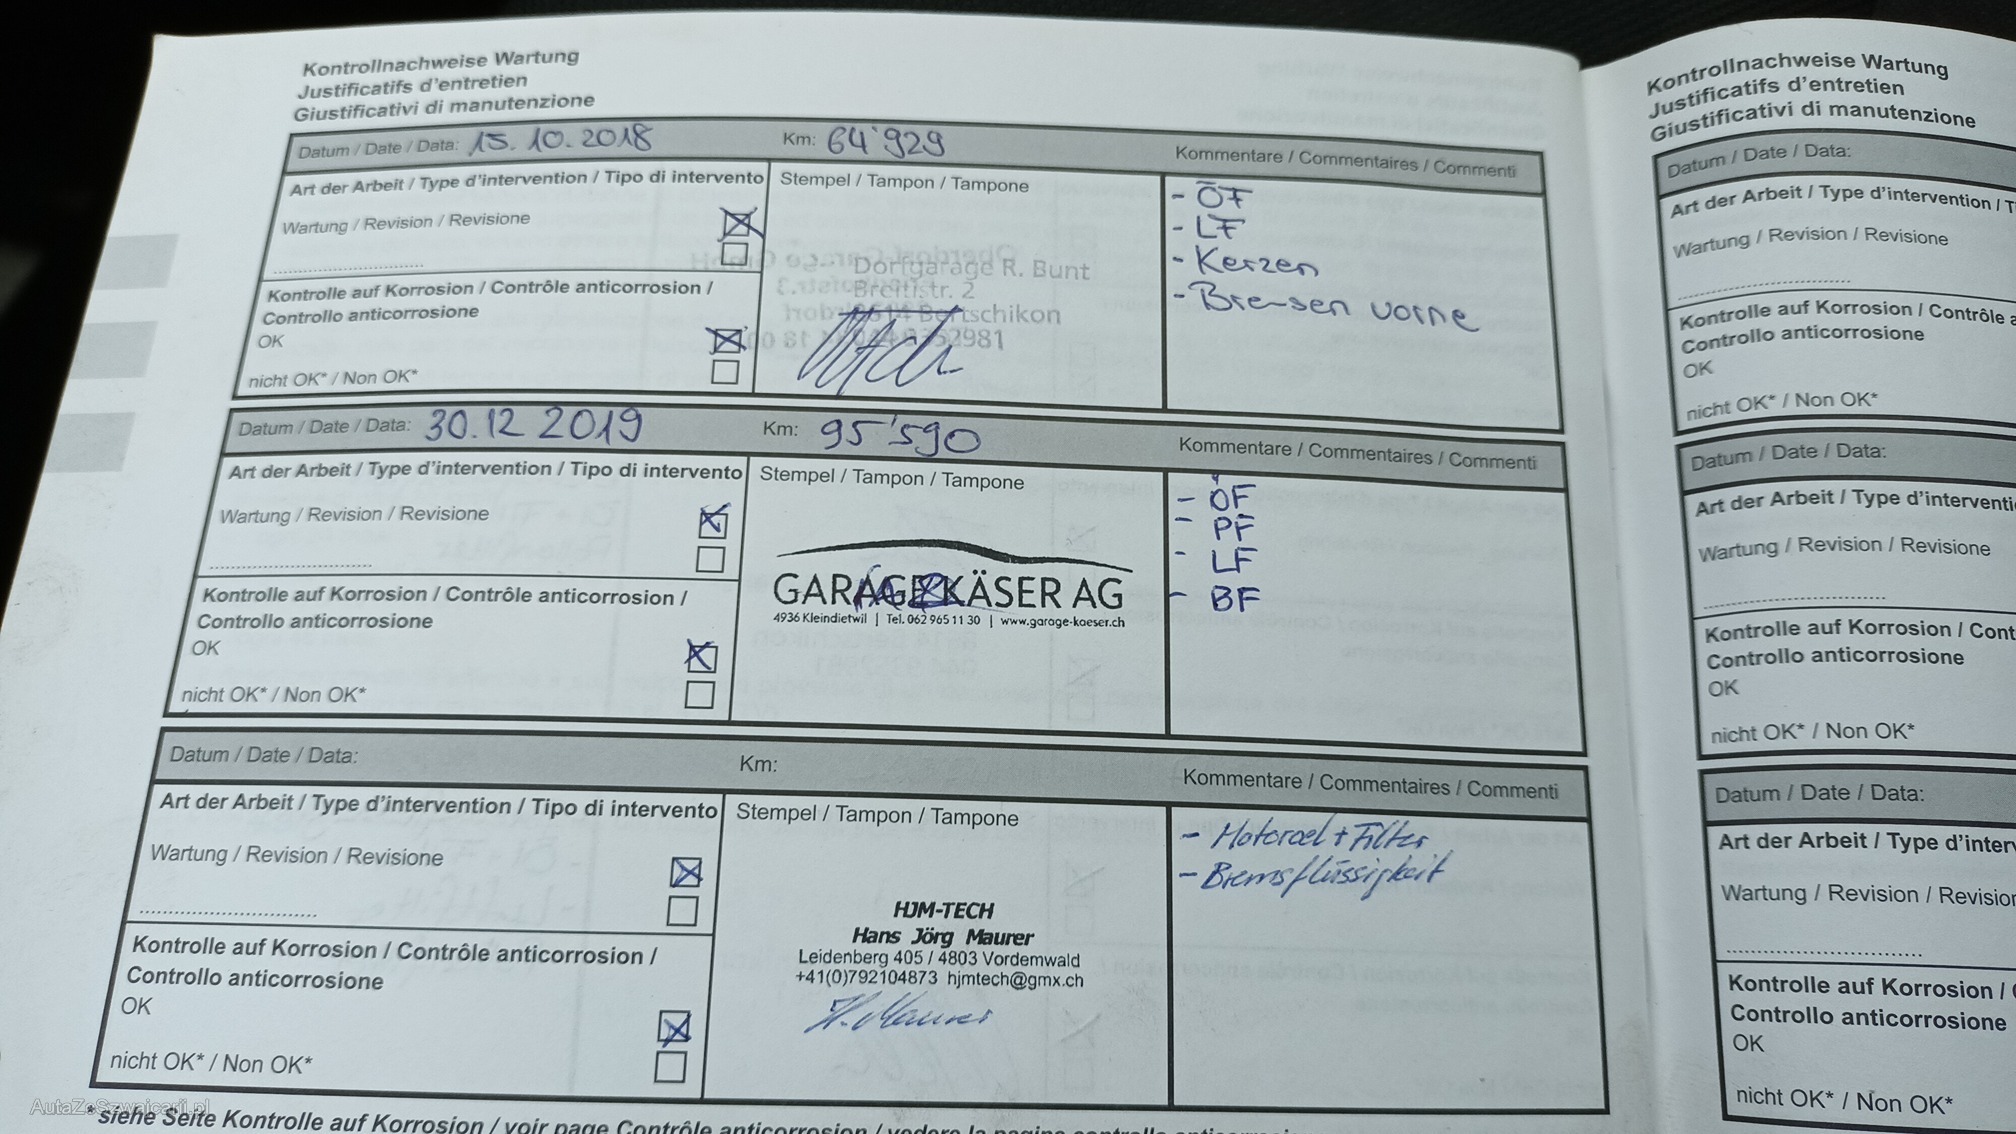 Kontrollnachweise Wartung
Justificatifs d'entretien
Giustificativi di manutenzione
Datum / Date / Data: 15.10.2018 Km: 64'929 Kommentare / Commentaires / Commenti
Art der Arbeit / Type d'intervention / Tipo di intervento
Wartung / Revision / Revisione
Kontrolle auf Korrosion / Contrôle anticorrosion /
Controllo anticorrosione
OK
nicht OK* / Non OK*
Stempel / Tampon / Tampone
Dorfgarage R. Bunt
Breitistr. 2
Bertschikon
- ÖF
- LF
- Kerzen
- Bremsen vorne
Datum / Date / Data: 30.12 2019 Km: 95'590 Kommentare / Commentaires / Commenti
Art der Arbeit / Type d'intervention / Tipo di intervento
Wartung / Revision / Revisione
Kontrolle auf Korrosion / Contrôle anticorrosion /
Controllo anticorrosione
OK
nicht OK* / Non OK*
Stempel / Tampon / Tampone
GARAGE KÄSER AG
4936 Kleindietwil | Tel. 062 965 11 30 | www.garage-kaeser.ch
- ÖF
- PF
- LF
- BF
Datum / Date / Data: Km: Kommentare / Commentaires / Commenti
Art der Arbeit / Type d'intervention / Tipo di intervento
Wartung / Revision / Revisione
Kontrolle auf Korrosion / Contrôle anticorrosion /
Controllo anticorrosione
OK
nicht OK* / Non OK*
Stempel / Tampon / Tampone
HJM-TECH
Hans Jörg Maurer
Leidenberg 405 / 4803 Vordemwald
+41(0)792104873 hjmtech@gmx.ch
H. Maurer
- Motoroel + Filter
- Bremsflüssigkeit
*siehe Seite Kontrolle auf Korrosion / voir page Contrôle anticorrosion /
Kontrollnachweise Wartung
Justificatifs d'entretien
Giustificativi di manutenzione
Datum / Date / Data:
Art der Arbeit / Type d'intervention / T
Wartung / Revision / Revisione
Kontrolle auf Korrosion / Contrôle a
Controllo anticorrosione
OK
nicht OK* / Non OK*
Datum / Date / Data:
Art der Arbeit / Type d'interventi
Wartung / Revision / Revisione
Kontrolle auf Korrosion / Cont
Controllo anticorrosione
OK
nicht OK* / Non OK*
Datum / Date / Data:
Art der Arbeit / Type d'inter
Wartung / Revision / Revision
Kontrolle auf Korrosion /
Controllo anticorrosione
OK
nicht OK* / Non OK*
AutaZeSzwajcarii.pl